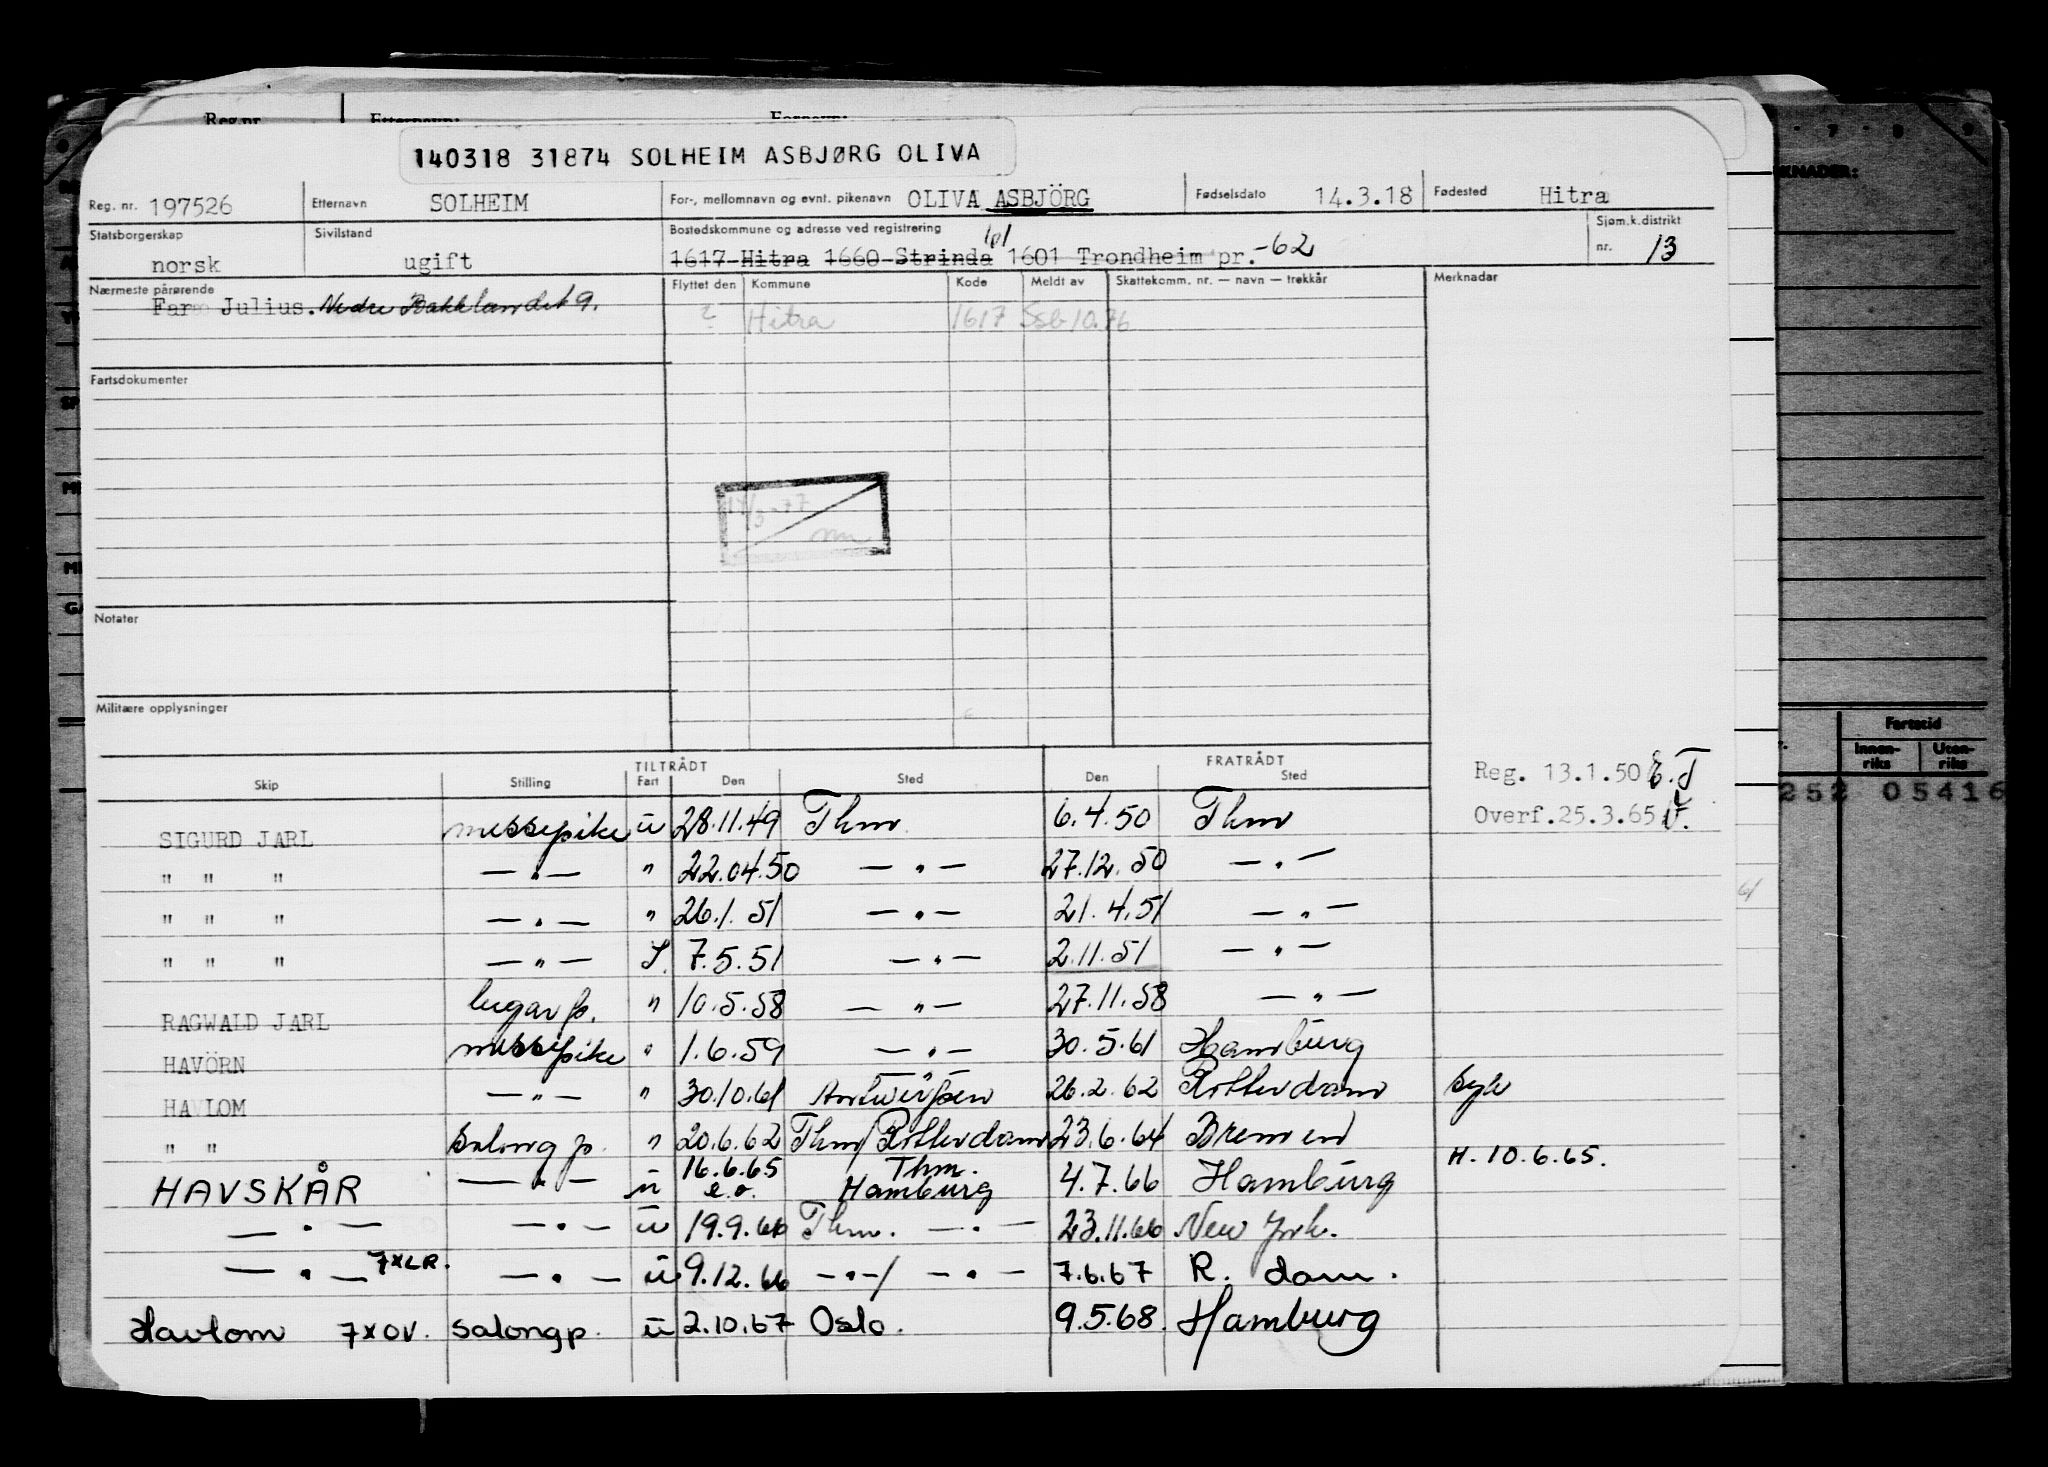 Reg.nr. Etternavn: Fornavn:
140318 31874 SOLHEIM ASBJØRG OLIVA
KNADER:
Reg. nr. 197526 Etternavn SOLHEIM For-, mellomnavn og evnt. pikenavn OLIVA ASBJÖRG Fødselsdato 14.3.18 Fødested Hitra
Statsborgerskap norsk Sivilstand ugift Bostedskommune og adresse ved registrering 1617 Hitra 1660 Strinda 61 1601 Trondheim pr.-62 Sjøm.k.distrikt nr. 13
Nærmeste pårørende Flyttet den Kommune Kode Meldt av Skattekomm. nr. — navn — trekkår Merknadar
Far Julius. Nedre Bakklandet 9. ? Hitra 1617 Ssb 10.76
Fartsdokumenter
14/3-77
Notater
Militære opplysninger
Fartstid
Innen-riks Uten-riks
252 05416
TILTRÅDT FRATRÅDT
Skip Stilling Fart Den Sted Den Sted
Reg. 13.1.50
Overf.25.3.65
SIGURD JARL messepike u 28.11.49 Thm 6.4.50 Thm
" " " — " — " 22.04.50 — " — 27.12.50 — " —
" " " — " — " 26.1.51 — " — 21.4.51 — " —
" " " — " — I. 7.5.51 — " — 2.11.51 — " —
RAGWALD JARL lugar p. " 10.5.58 — " — 27.11.58 — " —
HAVÖRN messepike " 1.6.59 — " — 30.5.61 Hamburg
HAVLOM — " — " 30.10.61 Antwerpen 26.2.62 Rotterdam syk
" " Salong p. " 20.6.62 Thm/Rotterdam 23.6.64 Bremen
H. 10.6.65.
HAVSKÅR — " — u 16.6.65 e.o. Thm. Hamburg 4.7.66 Hamburg
— " — — " — u 19.9.66 Thm. — " — 23.11.66 New York.
— " — 7XLR. — " — u 9.12.66 — " —/ — " — 7.6.67 R. dam.
Havlom 7XOV. salongp. u 2.10.67 Oslo. 9.5.68. Hamburg